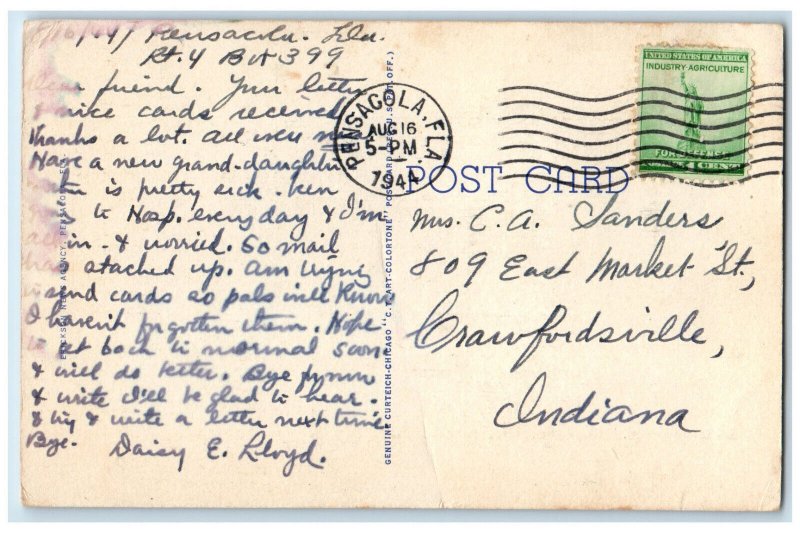 8/16/44 Pensacola. Fla.
Rt. 4 Box 399
Dear friend. Your letter
& nice cards received
thanks a lot. all were
Have a new grand-daughter
is pretty sick.
to Hosp. everyday & I'm
in - & worried. So mail
stacked up. am trying
send cards so pals will know
I haven't forgotten them. Hope
to get back to normal soon
& will do better. Bye for now
& write I'll be glad to hear.
& try & write a letter next time
Bye. Daisy E. Lloyd.
ERICKSON NEWS AGENCY, PENSACOLA
GENUINE CURTEICH-CHICAGO "C.T. ART-COLORTONE" POST CARD (REG. U.S. PAT. OFF.)
PENSACOLA, FLA.
AUG 16
5-PM
1944
UNITED STATES OF AMERICA
INDUSTRY-AGRICULTURE
FOR DEFENSE
1 CENT
POST CARD
Mrs. C. A. Sanders
809 East Market St.,
Crawfordsville,
Indiana